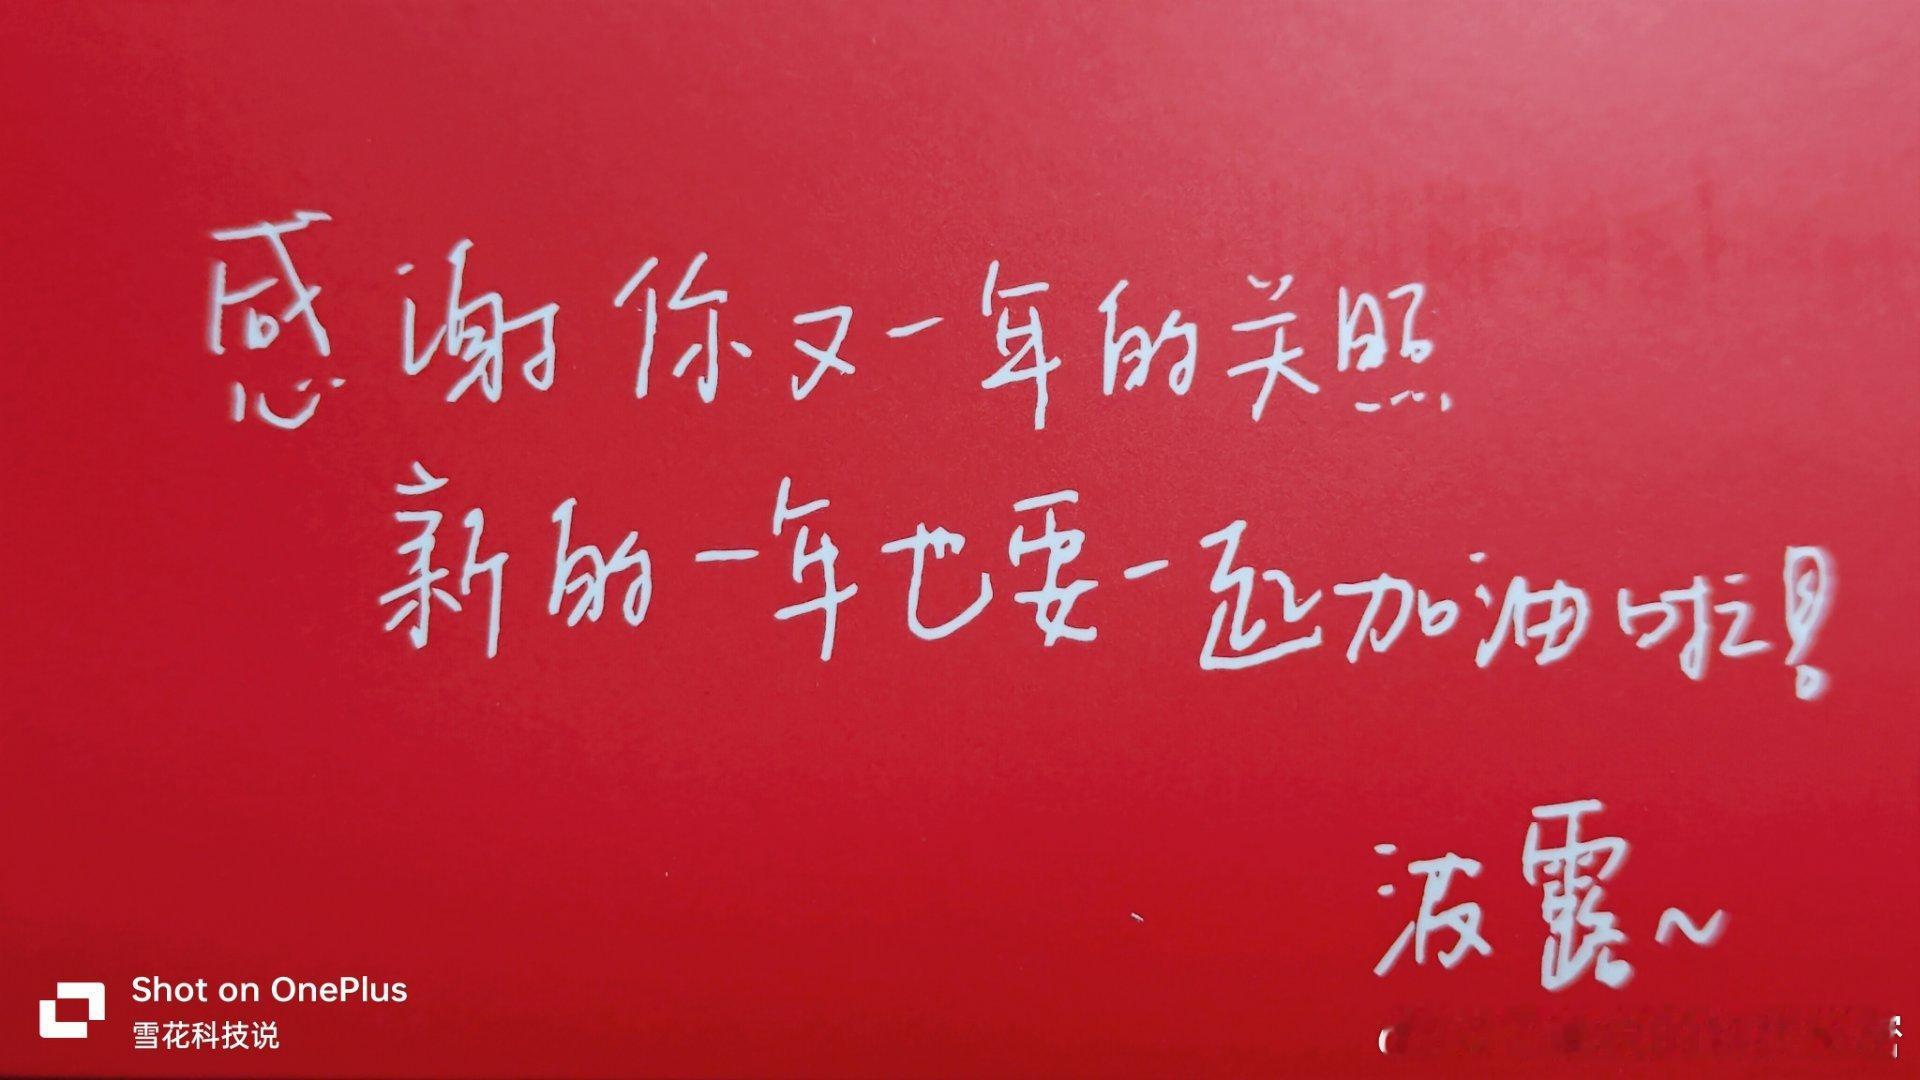 感谢你又一年的关照
新的一年也要一起加油啦！
波露～
Shot on OnePlus
雪花科技说